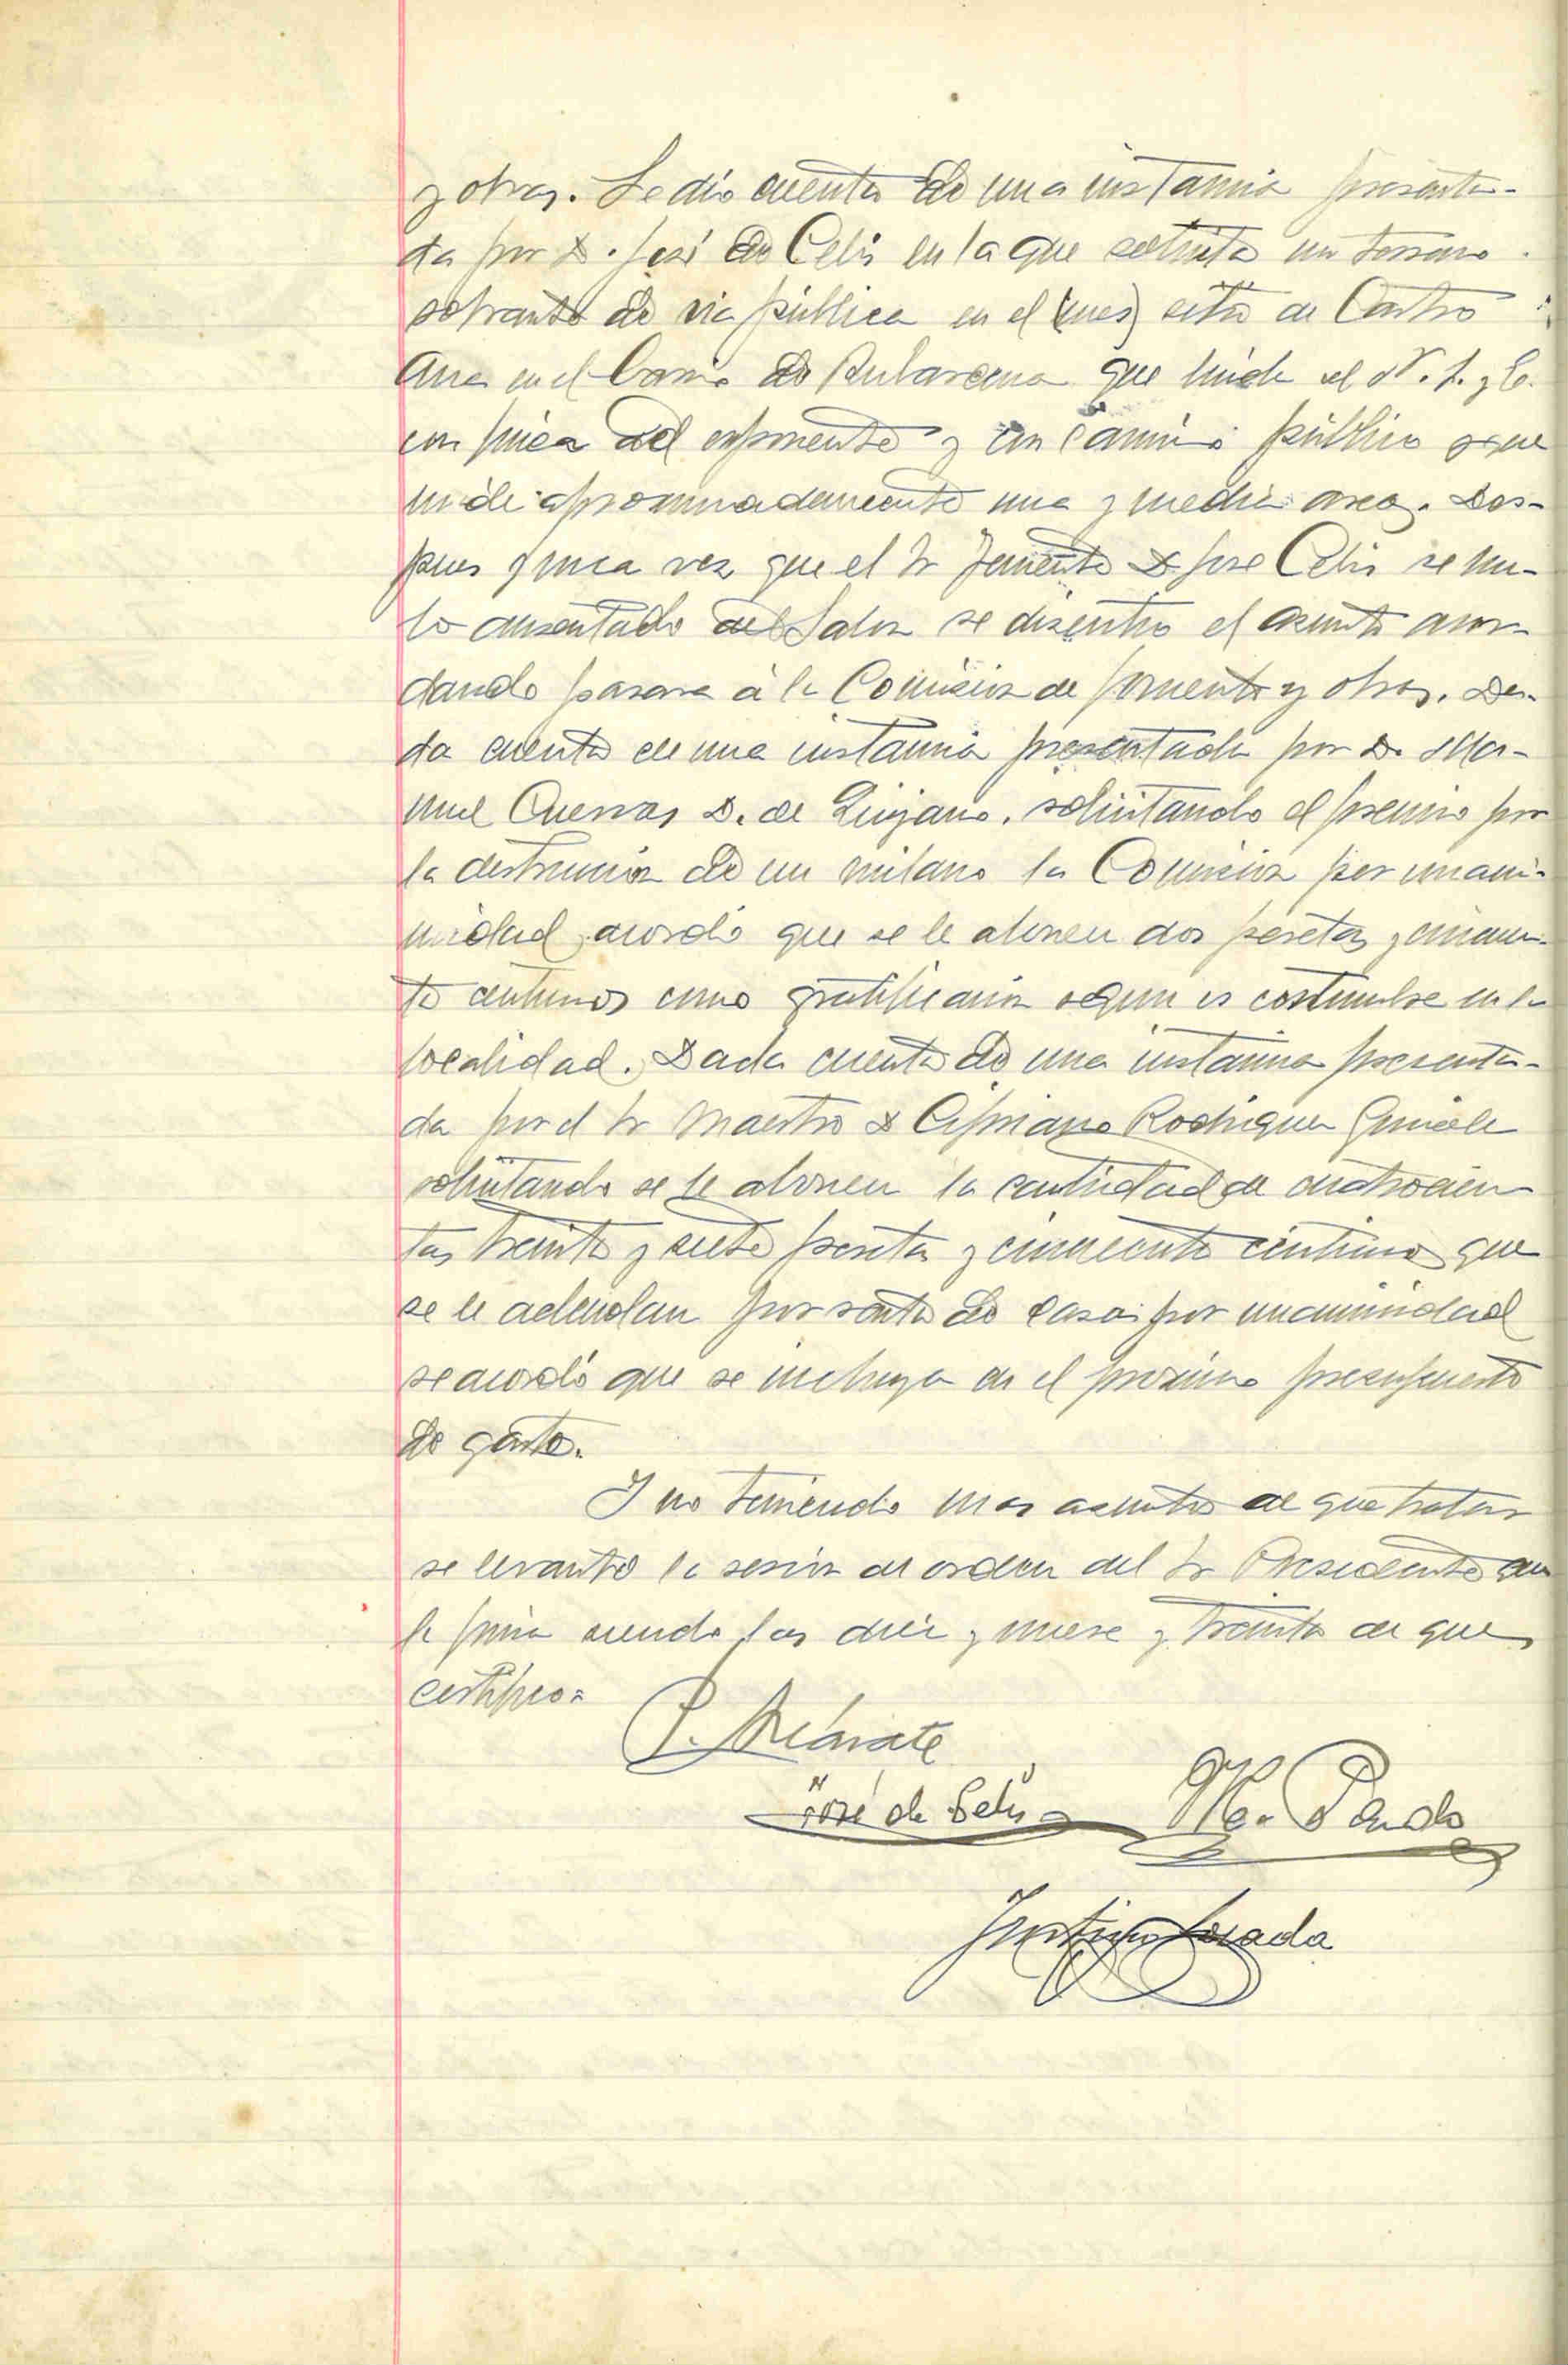 y obras. Se dió cuenta de una instancia presenta-
da por D. José de Celis en la que solicita un terreno
sobrante de via pública en el (mes) sitio de Castro
Ana en el barrio de Barcena que linda al N. S. y E.
con finca del exponente y con camino público y que
mide aproximadamente una y media areas. Des-
pues y unca vez que el Sr Teniente D José Celis se hu-
bo ausentado del Salon se discutio el asunto acor-
dando pasara á la Comision de fomento y obras. Da-
da cuenta de una instancia presentada por D. Ma-
nuel Cuevas D. de Quijano, solicitando el premio por
la destruccion de un milano la Comision por unani-
midad acordó que se le abonen dos pesetas y cincuen-
ta centimos como gratificacion segun es costumbre en la
localidad. Dada cuenta de una instancia presenta-
da por el Sr Maestro D Cipriano Rodriguez
solicitando se le abonen la cantidad de cuatrocien-
tas treinta y siete pesetas y cincuenta centimos que
se le adeudan por renta de casa: por unanimidad
se acordó que se incluya en el proximo presupuesto
de gastos.
Y no teniendo mas asuntos de que tratar
se levantó la sesion de orden del Sr Presidente que
la firma siendo las diez y nueve y treinta de que
certifico=
P.
José de Celis M. Pando
Losada